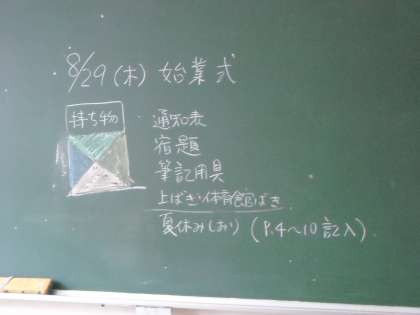 8/29(木) 始業式
持ち物
通知表
宿題
筆記用具
上ばき・体育館ばき
夏休みしおり (P.4〜10記入)